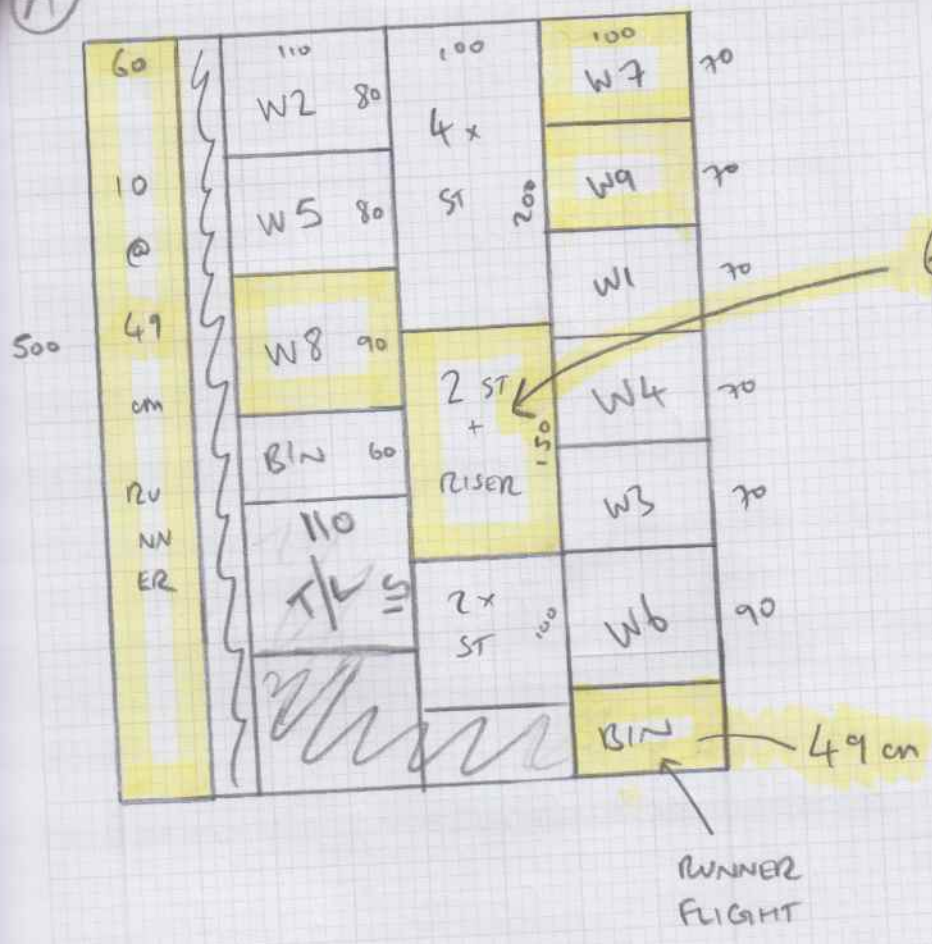 A
60
10
@
49
cm
RU
NN
ER
500
110
W2 80
W5 80
W8 90
BIN 60
110
T/L 115
100
4 x
ST
200
2 ST
+
RISER
150
2 x
ST
100
100
W7
70
W9
70
W1
70
W4
70
W3
70
W6
90
BIN
49 cm
RUNNER
FLIGHT